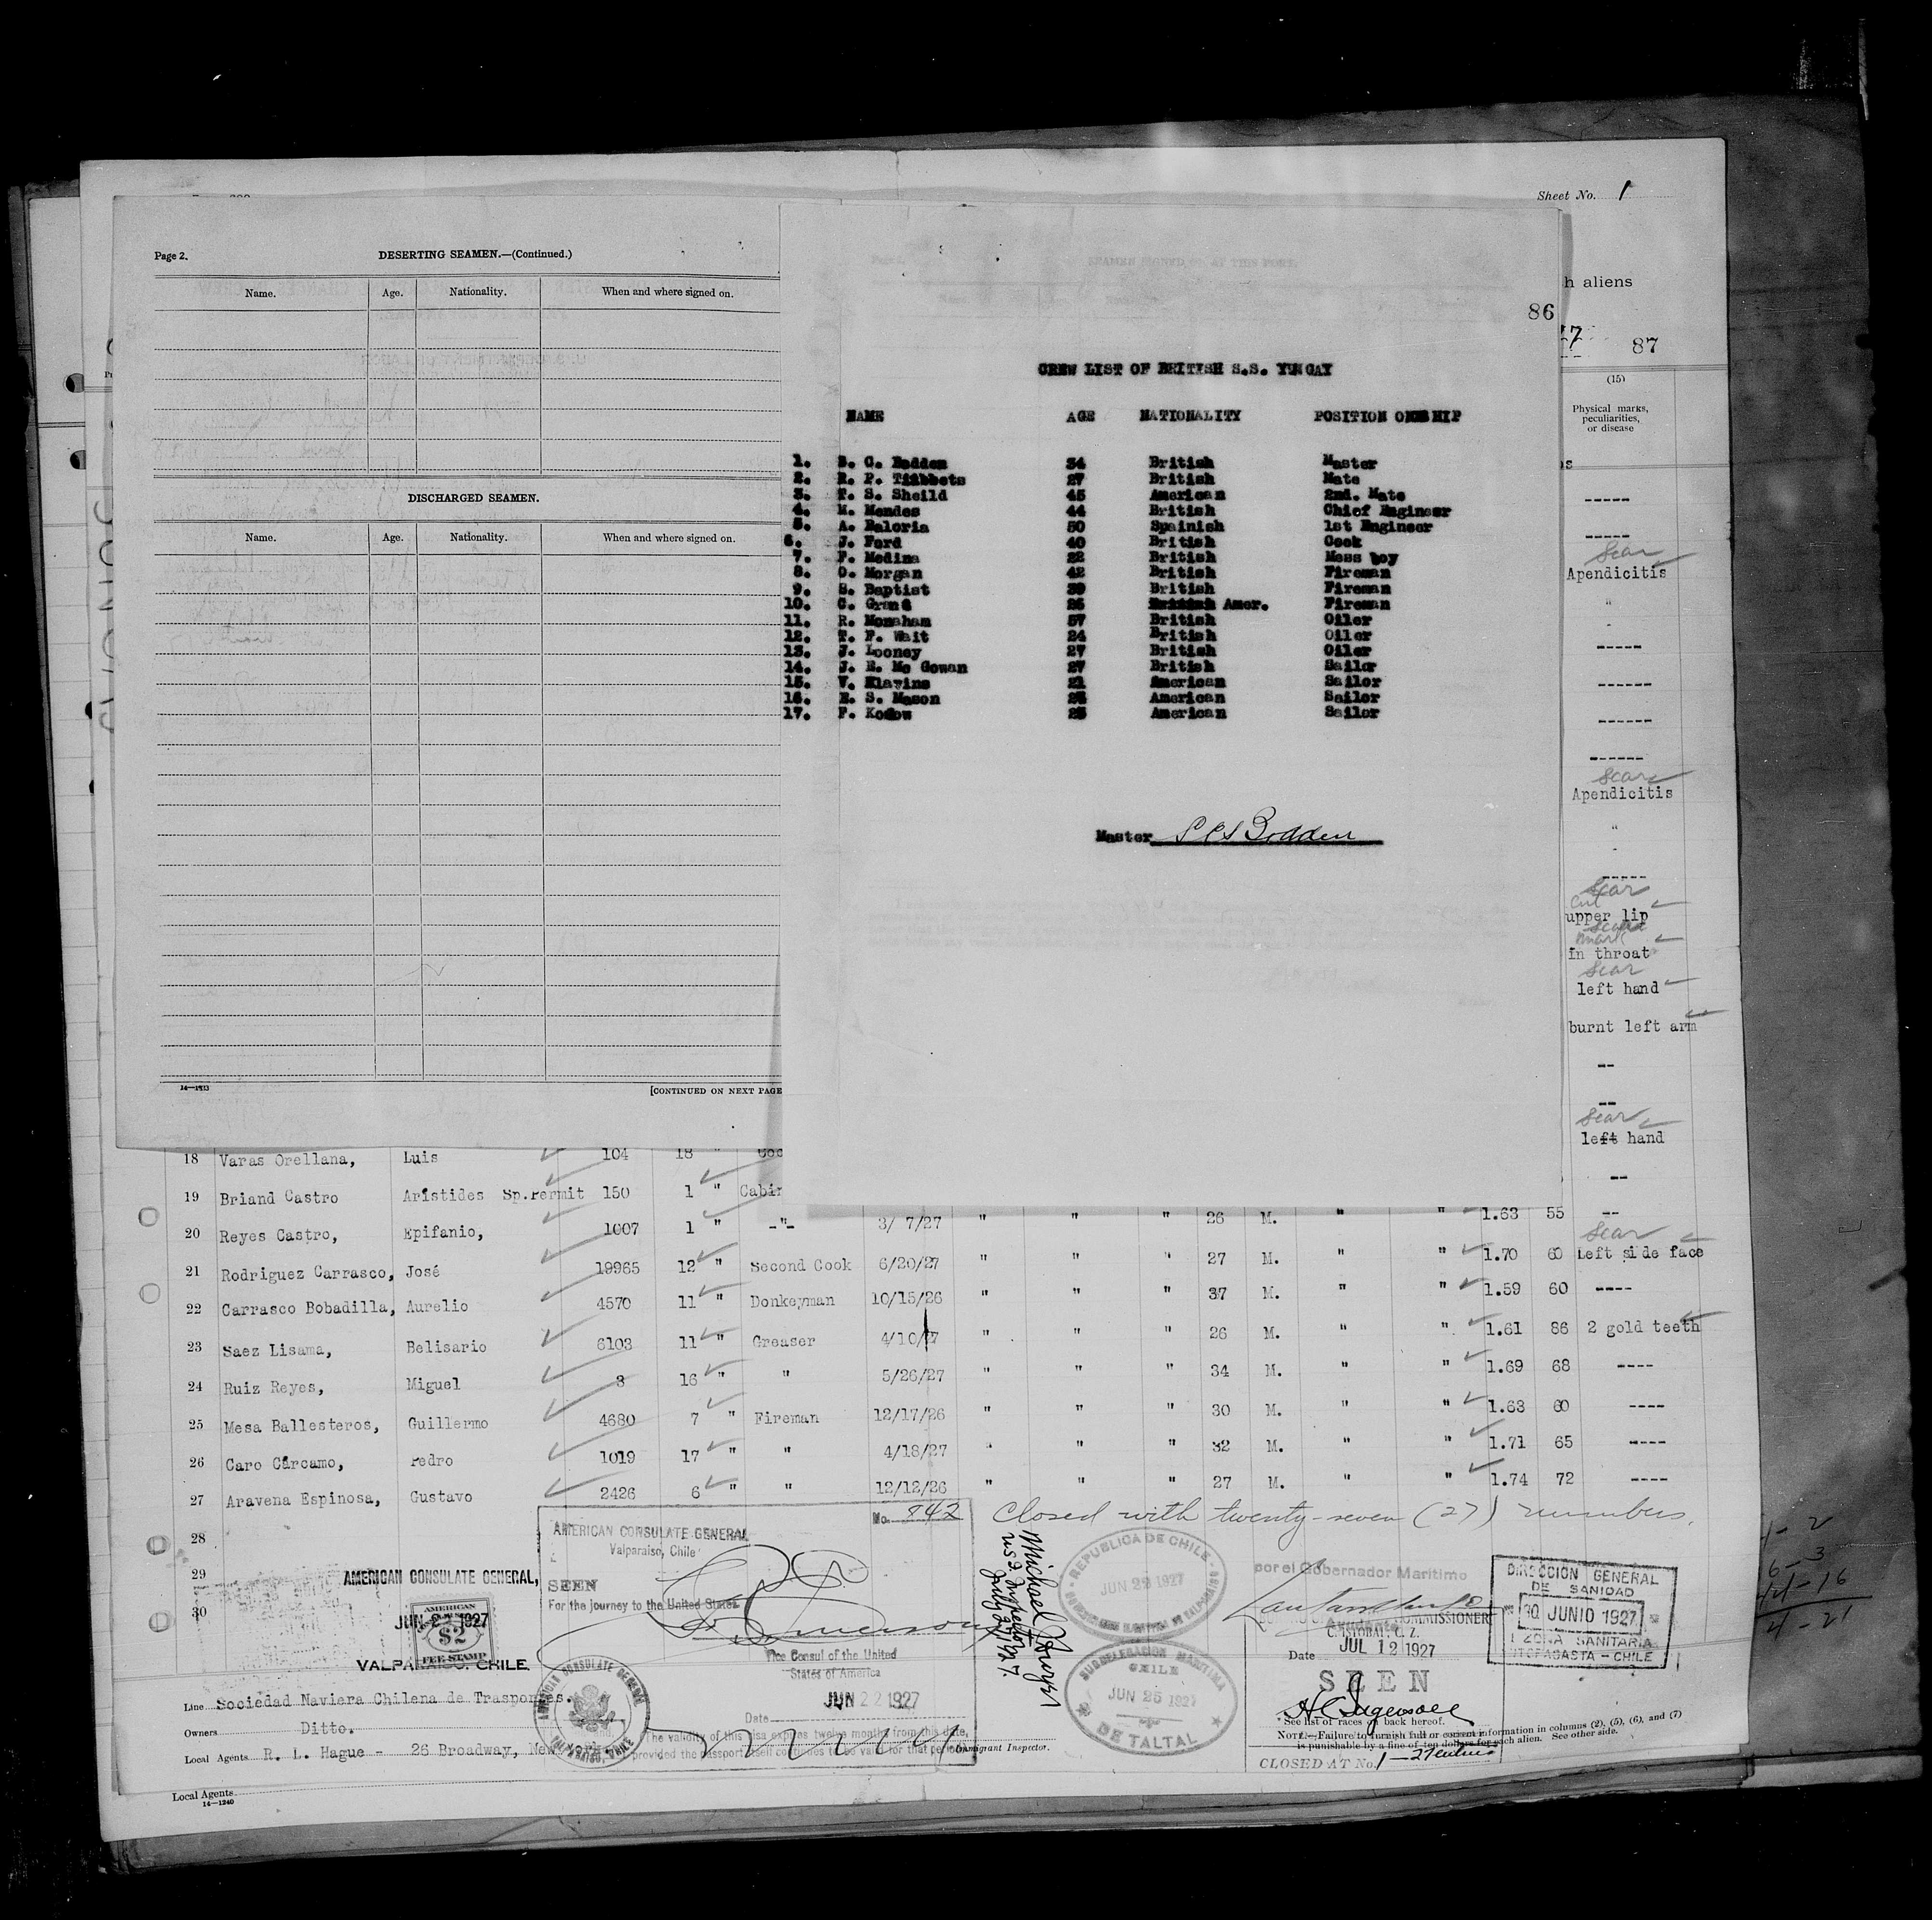 Sheet No. 1
h aliens
87
(15)
Physical marks,
peculiarities,
or disease
Page 2.
DESERTING SEAMEN.—(Continued.)
Name. Age. Nationality. When and where signed on.
DISCHARGED SEAMEN.
Name. Age. Nationality. When and where signed on.
14—1313
[CONTINUED ON NEXT PAGE
86
CREW LIST OF BRITISH S.S. YUNGAY
NAME AGE NATIONALITY POSITION ON SHIP
1. S. C. Bodden 34 British Master
2. R. P. Tibbets 27 British Mate
3. T. S. Sheild 45 American 2nd. Mate
4. M. Mendes 44 British Chief Engineer
5. A. Baloria 50 Spainish 1st Engineer
6. J. Ford 40 British Cook
7. F. Medina 22 British Mess boy
8. O. Morgan 42 British Fireman
9. S. Baptist 39 British Fireman
10. C. Grant 26 Amer. Fireman
11. R. Monaham 57 British Oiler
12. T. F. Wait 24 British Oiler
13. J. Looney 27 British Oiler
14. J. E. Mc Gowan 27 British Sailor
15. V. Klavins 21 American Sailor
16. E. S. Mason American Sailor
17. F. American Sailor
Master Bodden
-----
-----
Scar
Apendicitis
"
-----
------
------
------
Scar
Apendicitis
"
-----
Scar
Cut
upper lip
mark
in throat
Scar
left hand
burnt left arm
--
--
Scar
left hand
--
18 Varas Orellana, Luis 104 18 "
19 Briand Castro Aristides Sp.Permit 150 1 " Cabin
20 Reyes Castro, Epifanio, 1007 1 " -"- 3/ 7/27 " " " 26 M. " " 1.63 55 --
21 Rodriguez Carrasco, José 19965 12 " Second Cook 6/20/27 " " " 27 M. " " 1.70 60 Scar Left side face
22 Carrasco Bobadilla, Aurelio 4570 11 " Donkeyman 10/15/26 " " " 37 M. " " 1.59 60 ----
23 Saez Lisama, Belisario 6103 11 " Greaser 4/10/27 " " " 26 M. " " 1.61 86 2 gold teeth
24 Ruiz Reyes, Miguel 3 16 " " 5/26/27 " " " 34 M. " " 1.69 68 ----
25 Mesa Ballesteros, Guillermo 4680 7 " Fireman 12/17/26 " " " 30 M. " " 1.63 60 ----
26 Caro Cárcamo, Pedro 1019 17 " " 4/18/27 " " " 32 M. " " 1.71 65 ----
27 Aravena Espinosa, Gustavo 2426 6 " " 12/12/26 " " " 27 M. " " 1.74 72 ----
28
29
30
No. 842 Closed with twenty-seven (27) numbers.
AMERICAN CONSULATE GENERAL
Valparaiso, Chile
SEEN
For the journey to the United States
Vice Consul of the United
States of America
JUN 22 1927
Date
The validity of this visa expires twelve months from this date,
provided the passport itself continues to be valid for that period.
AMERICAN CONSULATE GENERAL,
JUN 22 1927
VALPARAISO, CHILE.
AMERICAN
$2
FEE STAMP
AMERICAN CONSULATE GENERAL
VALPARAISO, CHILE
Michael
U.S. Inspector
July 21/27.
REPUBLICA DE CHILE
JUN 22 1927
SUBDELEGACION MARITIMA
CHILE
JUN 25 1927
DE TALTAL
por el Gobernador Maritimo
COMMISSIONER
CRISTOBAL, C. Z.
Date JUL 12 1927
SEEN
DIRECCION GENERAL
DE SANIDAD
30 JUNIO 1927
ZONA SANITARIA
ANTOFAGASTA - CHILE
Line Sociedad Naviera Chilena de Trasportes.
Owners Ditto.
Local Agents R. L. Hague - 26 Broadway, New York
Immigrant Inspector.
*See list of races on back hereof.
NOTE.—Failure to furnish full or correct information in columns (2), (5), (6), and (7)
is punishable by a fine of ten dollars for each alien. See other side.
CLOSED AT No.
Local Agents
14—1240